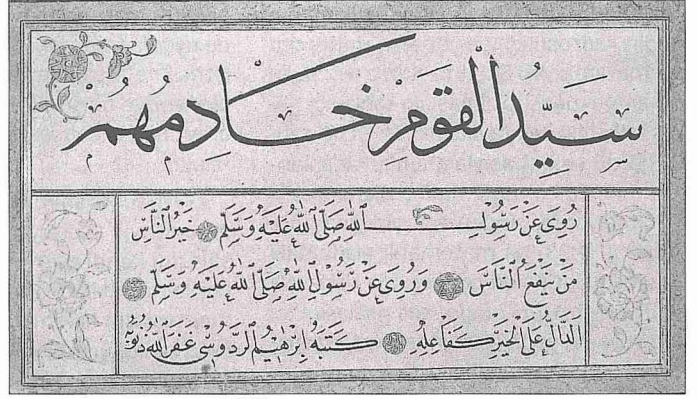 سَيِّدُ الْقَوْمِ خَادِمُهُمْ
رُوِيَ عَنْ رَسُولِ اللّٰهِ صَلَّى اللّٰهُ عَلَيْهِ وَسَلَّمَ خَيْرُ النَّاسِ
مَنْ يَنْفَعُ النَّاسَ وَرُوِيَ عَنْ رَسُولِ اللّٰهِ صَلَّى اللّٰهُ عَلَيْهِ وَسَلَّمَ
الدَّالُّ عَلَى الْخَيْرِ كَفَاعِلِهِ كَتَبَهُ اِبْرٰهِيمُ الرَّدُوسِي غَفَرَ اللّٰهُ ذُنُوبَهُ